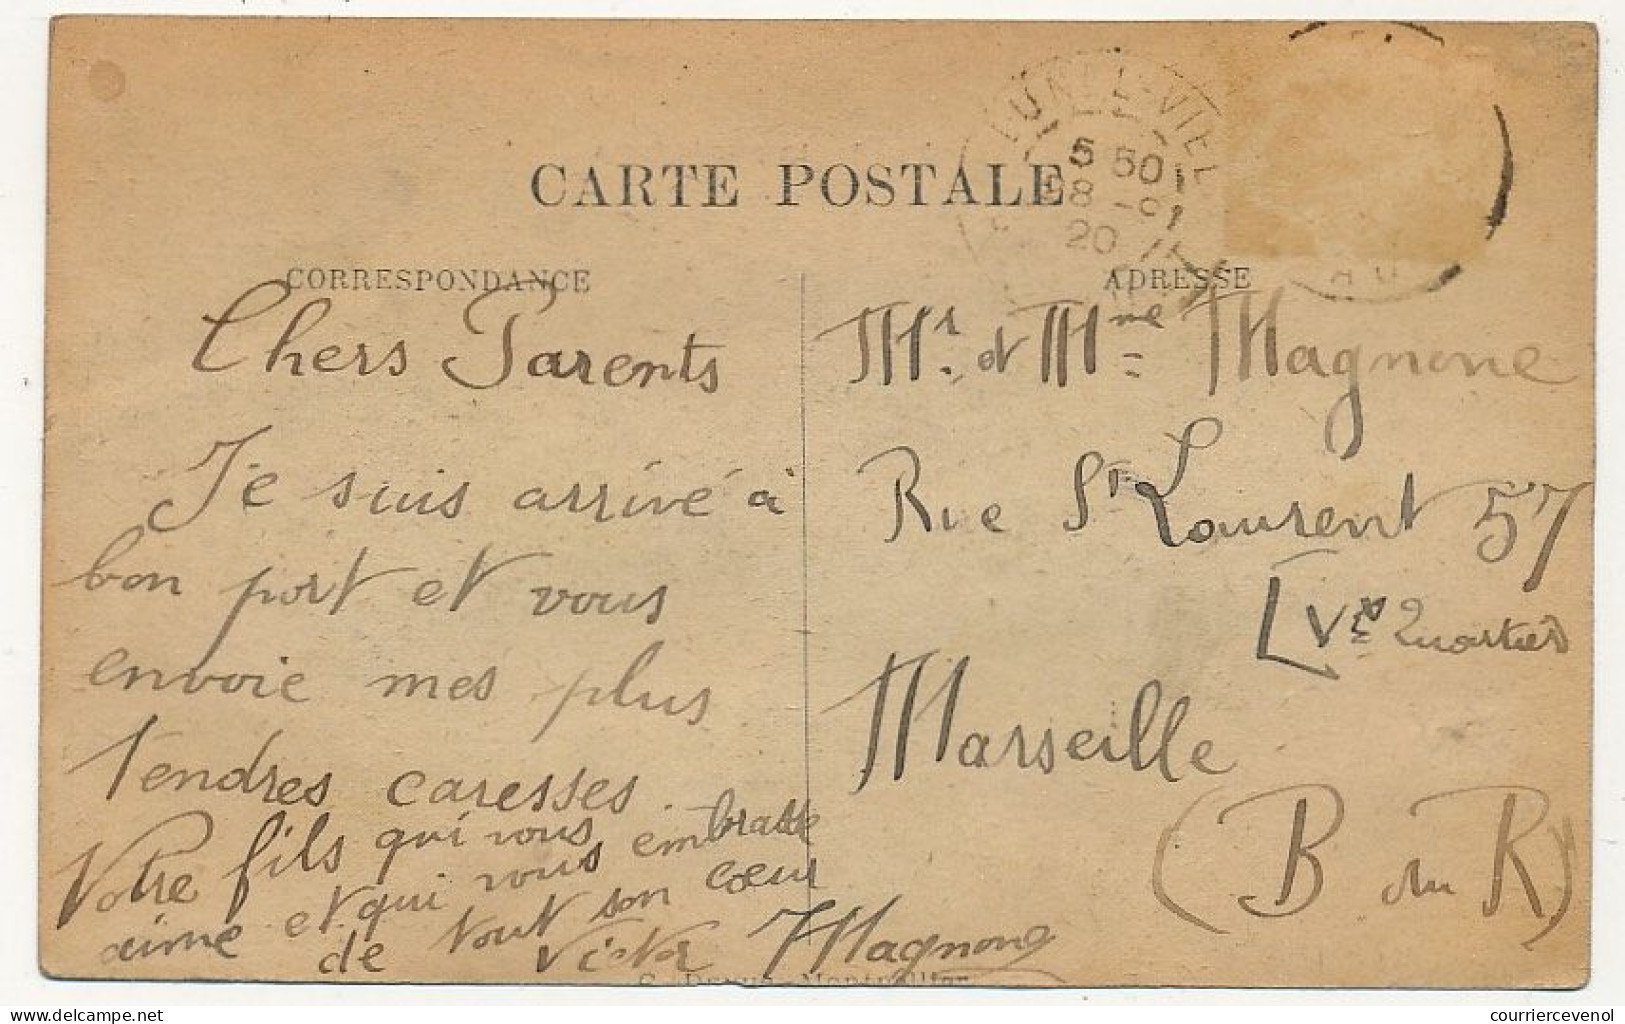 CARTE POSTALE
CORRESPONDANCE
Chers Parents
Je suis arrivé à
bon port et vous
envoie mes plus
tendres caresses.
Votre fils qui vous embrasse
aime et qui vous
de tout son cœur
Victor Magnone
ADRESSE
Mr. et Mme Magnone
Rue St Laurent 57
Vx Quartiers
Marseille
(B du R)
LUNEL-VIEL
5 50
8 -9
20
Montpellier
delcampe.net
courriercevenol